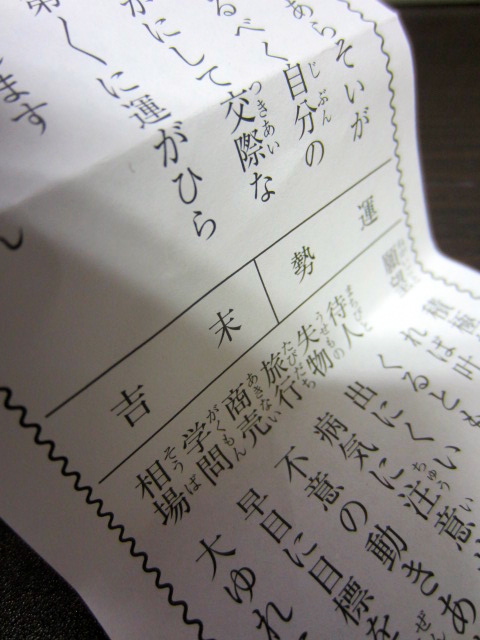 あらそいが
るべく自分の
かにして交際な
第〱に運がひら
ます
運勢
末吉
願望 積極
れば叶
待人 くるとも
失物 出にくい
旅行 病気に注意
商売 不意の動きあ
学問 早目に目標を
相場 大ゆれ